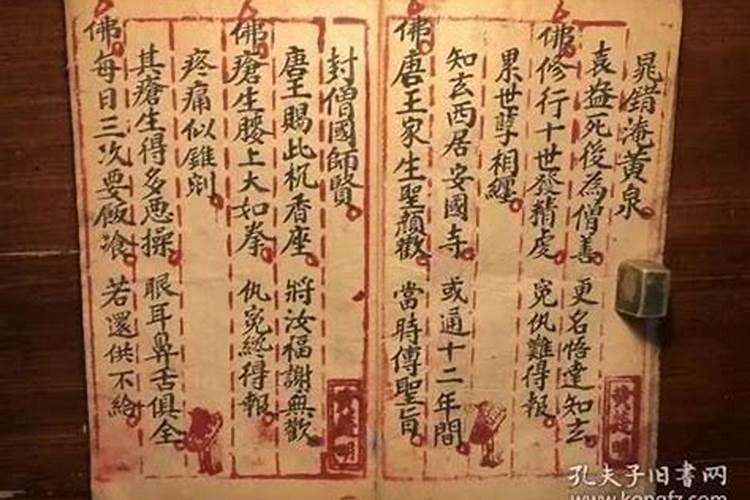 晁錯淹黃泉
袁益死後為僧善 更名悟達知玄
佛 修行十世發精虔 冤仇難得報
累世孽相纏
知玄西居安國寺 或通十二年間
佛 唐王家生聖顏歡 當時傳聖旨
封僧國師賢
唐王賜此杌香座 將汝福謝無歡
佛 瘡生腰上大如拳 仇冤終得報
疼痛似錐剜
其瘡生得多惡操 眼耳鼻舌俱全
佛 每日三次要飯飡 若還供不給
孔夫子旧书网